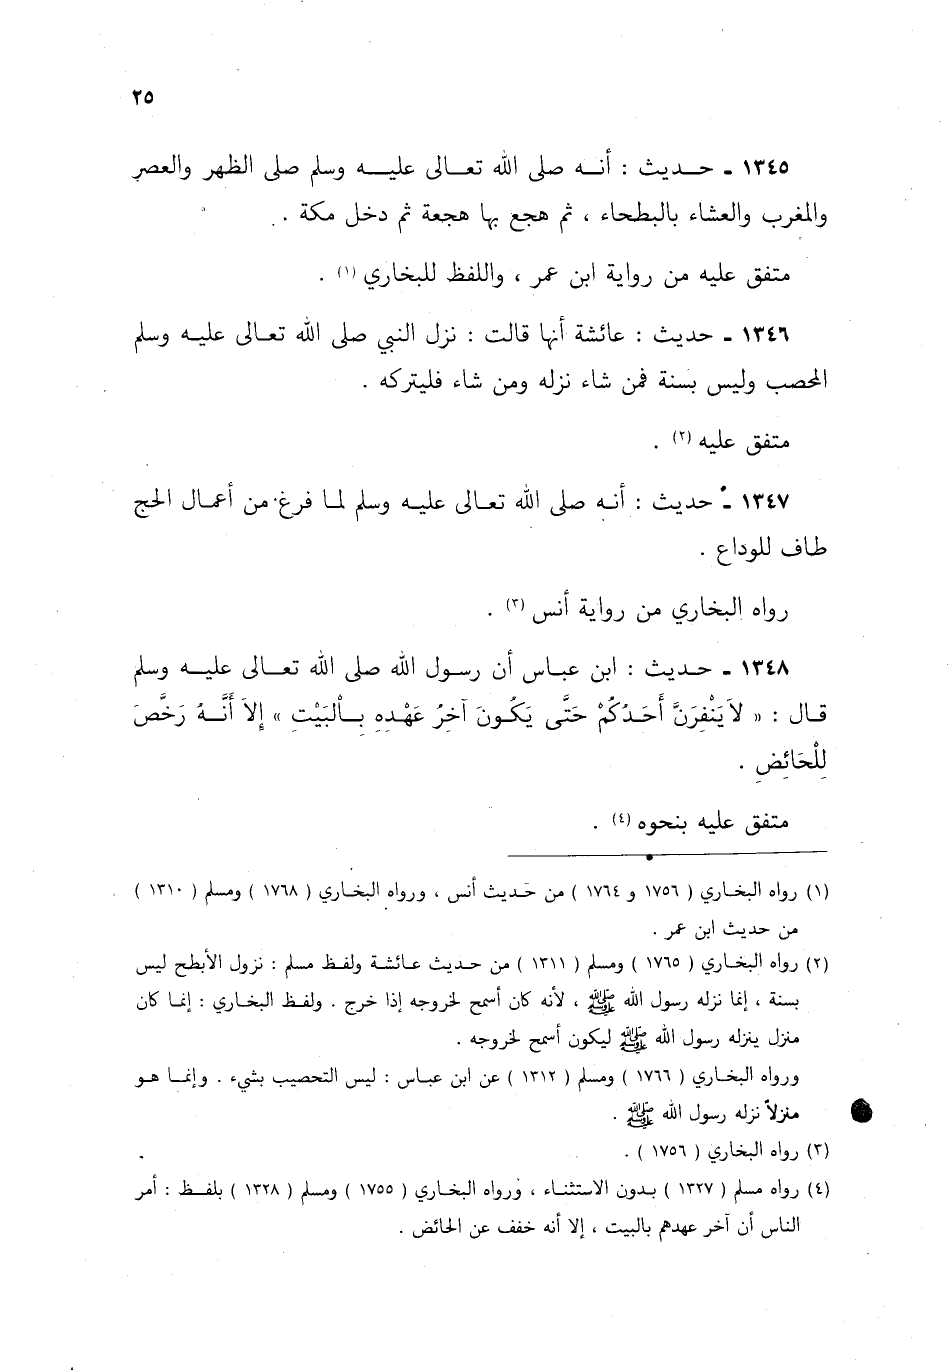 ٢٥
١٣٤٥ ـ حـديث : أنـه صلى الله تعـالى عليـه وسلم صلى الظهر والعصر
والمغرب والعشاء بالبطحاء ، ثم هجع بها هجعة ثم دخل مكة .
متفق عليه من رواية ابن عمر ، واللفظ للبخاري (١) .
١٣٤٦ ـ حديث : عائشة أنها قالت : نزل النبي صلى الله تعـالى عليـه وسلم
المحصب وليس بسنة فمن شاء نزله ومن شاء فليتركه .
متفق عليه (٢) .
١٣٤٧ ـ حديث : أنـه صلى الله تعـالى عليـه وسلم لمـا فرغ من أعمـال الحج
طاف للوداع .
رواه البخاري من رواية أنس (٣) .
١٣٤٨ ـ حـديث : ابن عبـاس أن رسـول الله صلى الله تعـالى عليـه وسلم
قـال : « لاَ يَنْفِرَنَّ أَحَـدُكُمْ حَتَّى يَكُـونَ آخِرُ عَهْـدِهِ بِـالْبَيْتِ » إِلاَ أَنَّـهُ رَخَّصَ
لِلْحَائِضِ .
متفق عليه بنحوه (٤) .
(١) رواه البخـاري ( ١٧٥٦ و ١٧٦٤ ) من حـديث أنس ، ورواه البخـاري ( ١٧٦٨ ) ومسلم ( ١٣١٠ )
من حديث ابن عمر .
(٢) رواه البخـاري ( ١٧٦٥ ) ومسلم ( ١٣١١ ) من حـديث عـائشـة ولفـظ مسلم : نزول الأبطح ليس
بسنة ، إنما نزله رسول الله ﷺ ، لأنه كان أسمح لخروجه إذا خرج . ولفـظ البخـاري : إنمـا كان
منزل ينزله رسول الله ﷺ ليكون أسمح لخروجه .
ورواه البخـاري ( ١٧٦٦ ) ومسلم ( ١٣١٢ ) عن ابن عبـاس : ليس التحصيب بشيء . وإنمـا هـو
منزلاً نزله رسول الله ﷺ .
(٣) رواه البخاري ( ١٧٥٦ ) .
(٤) رواه مسلم ( ١٣٢٧ ) بـدون الاستثنـاء ، ورواه البخـاري ( ١٧٥٥ ) ومسلم ( ١٣٢٨ ) بلفـظ : أمر
الناس أن آخر عهدهم بالبيت ، إلا أنه خفف عن الحائض .